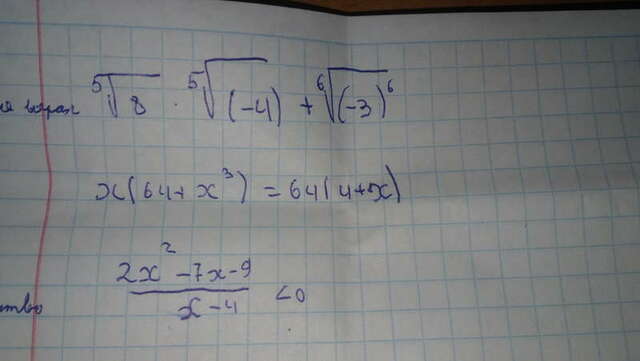 ⁵√8 · ⁵√(-4) + ⁶√(-3)⁶
x(64+x³) = 64(4+x)
2x²-7x-9
x-4 <0